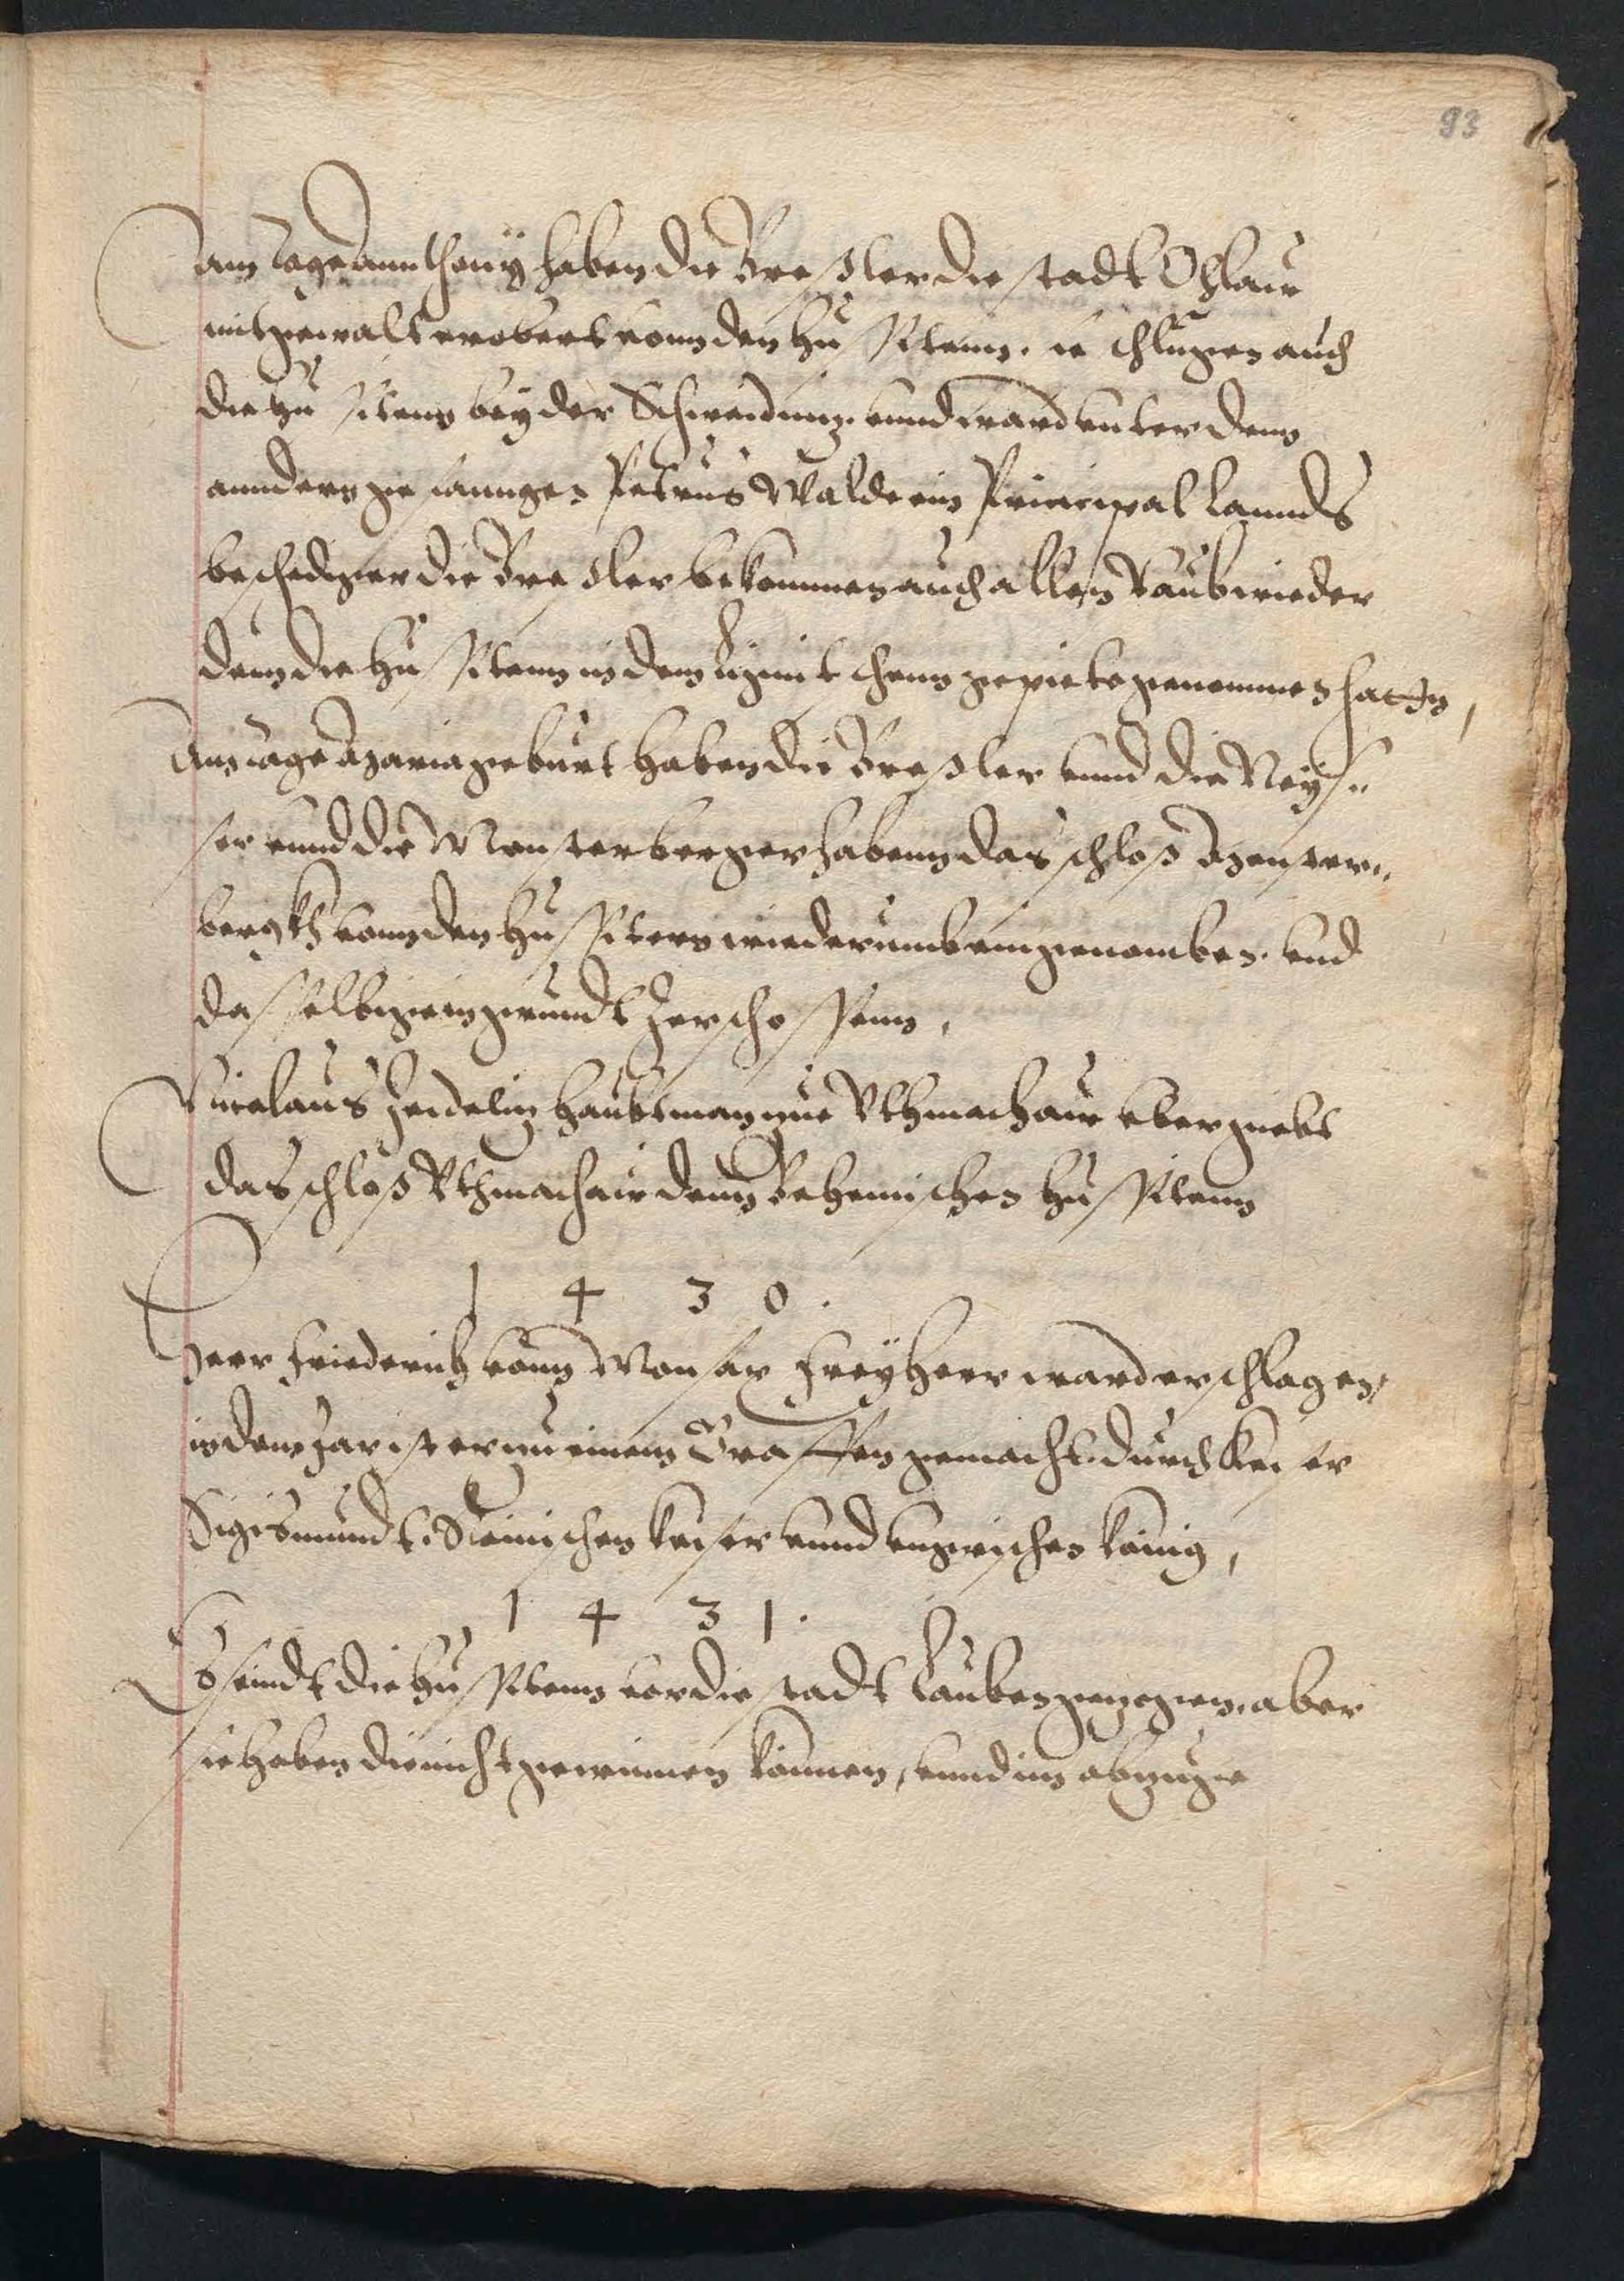 93
am tage annthonÿ haben die Breßler die stadt Ohlaw
mit gewalt erobert vonn den Hussitenn. sie schlugen auch
die Hussitenn beÿ der Schweidnitz. vnnd ward vnter denn
anndern gefanngen Petrus Walde ein Principal Lanndts
beschediger die Breßler bekommen auch allen Raub wieder
denn die Hussitenn in dem gepiete genommen hatten,
Am tage Maria geburt haben die Breßler vnnd die Neÿs„
ser vnnd die Monsterberger habenn das schloß Monster„
bergkh vonn den Hussitenn wiederumb eingenomben. vnd
dasselbige in grundt zerschossenn,
Nicolaus Zeidelitz Haubtman zue Othmachaw vbergiebt
das schloß Othmachaw denn Behemischen Hussitenn
1 4 3 0.
Herr Friederich vonn Freÿherr ward erschlagen
in dem Jar ist er zu einem Graffen gemacht. durch Keiser
Sigismundt. Römischen keiser vnnd vngrischen könig,
1 4 3 1.
Es seindt die Hussitenn vor die stadt Lauben gezogen. aber
sie haben die nicht gewinnen können, vnnd im abzuge